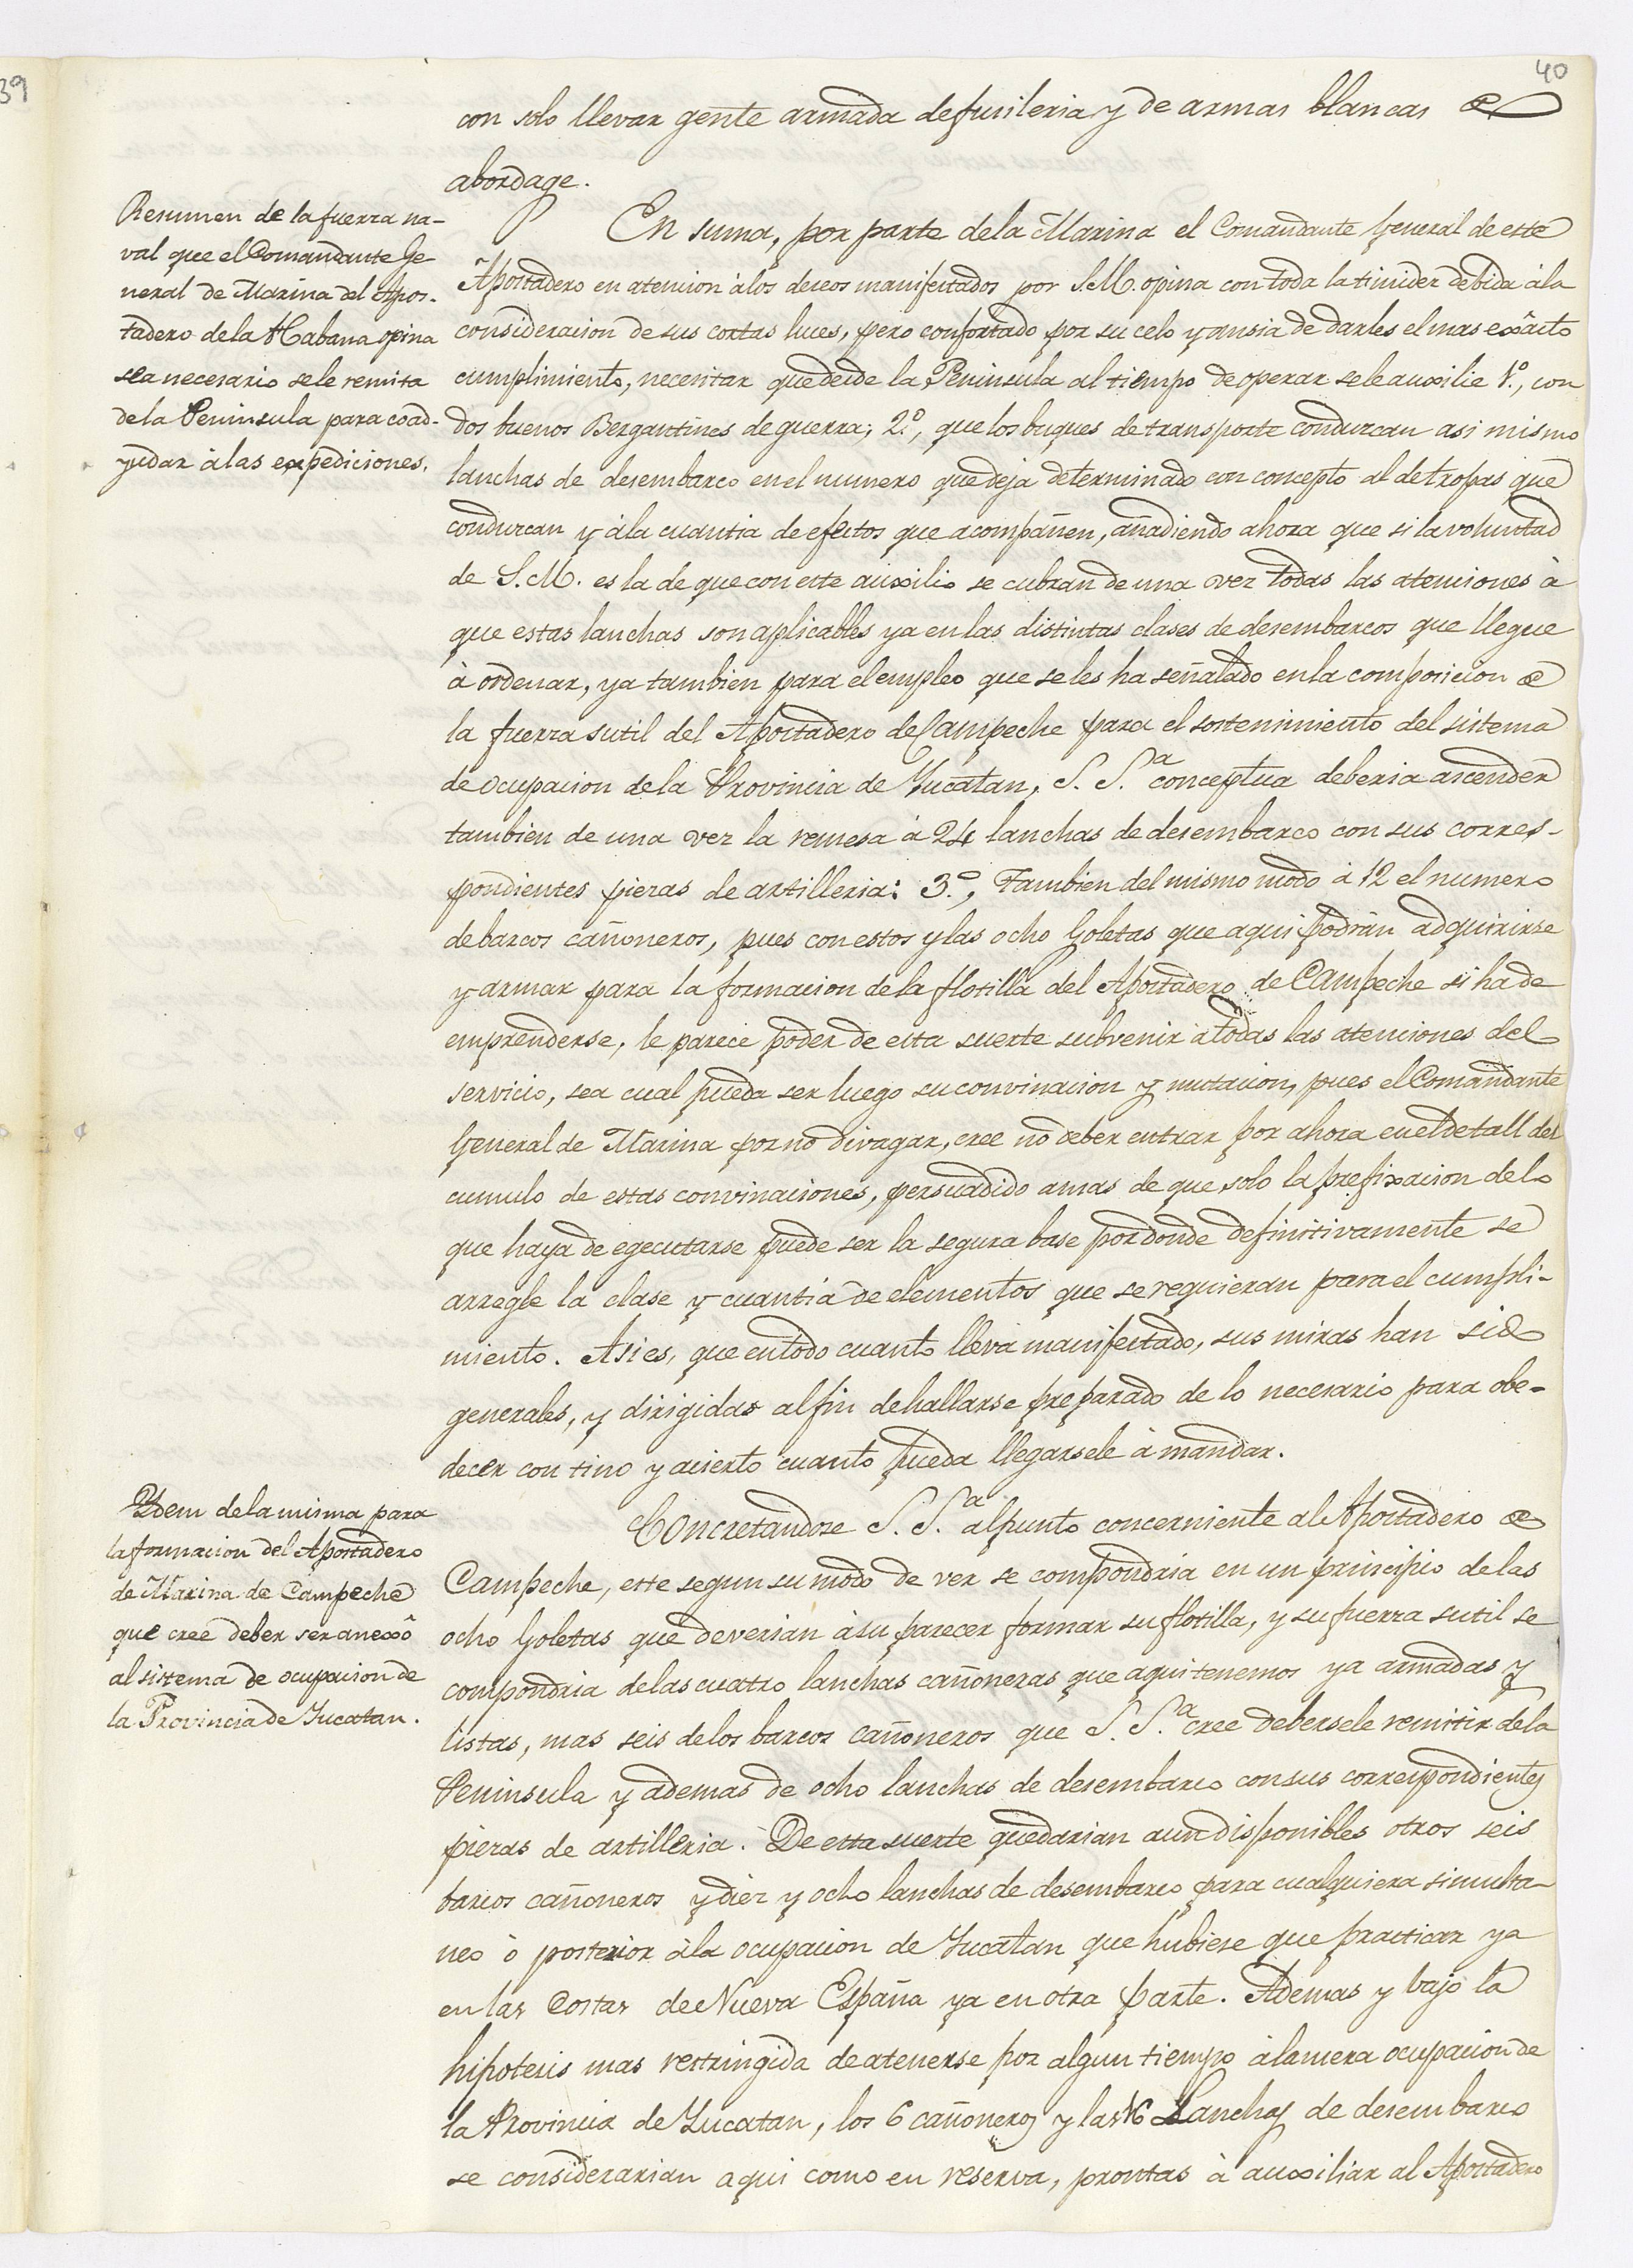 39
40
con solo llevar gente armada de fusileria y de armas blancas de
abordage.
Resumen de la fuerza na-
val que el Comandante Ge-
neral de Marina del Apos-
tadero de la Habana opina
sea necesario se le remita
de la Peninsula para coad-
yudar à las expediciones.
En suma, por parte de la Marina el Comandante General de este
Apostadero en atencion à los deseos manifestados por S.M. opina con toda la timidez debida à la
consideracion de sus cortas luces, pero confortado por su celo y ansia de darles el mas exâcto
cumplimiento, necesitar que desde la Peninsula al tiempo de operar se le auxilie 1º., con
dos buenos Bergantines de guerra; 2º., que los buques de transporte conduzcan asi mismo
lanchas de desembarco en el numero que deja determinado con concepto al de tropas que
conduzcan y à la cuantia de efectos que acompañen, añadiendo ahora que si la voluntad
de S.M. es la de que con este auxilio se cubran de una vez todas las atenciones à
que estas lanchas son aplicables ya en las distintas clases de desembarcos que llegue
à ordenar, ya tambien para el empleo que se les ha señalado en la composicion de
la fuerza sutil del Apostadero de Campeche para el sostenimiento del sistema
de ocupacion de la Provincia de Yucatan, S. S.ª conceptua deberia ascender
tambien de una vez la remesa à 24 lanchas de desembarco con sus corres-
pondientes piezas de artilleria: 3º., Tambien del mismo modo à 12 el numero
de barcos cañoneros, pues con estos y las ocho Goletas que aqui podrán adquirirse
y armar para la formacion de la flotilla del Apostadero de Campeche si ha de
emprenderse, le parece poder de esta suerte subvenir a todas las atenciones del
servicio, sea cual pueda ser luego su convinacion y mutacion, pues el Comandante
General de Marina por no divagar, cree no deber entrar por ahora en el detall del
cumulo de estas convinaciones, persuadido amas de que solo la prefixacion de lo
que haya de egecutarse puede ser la segura base por donde definitivamente se
arregle la clase y cuantia de elementos que se requieran para el cumpli-
miento. Asi es, que en todo cuanto lleva manifestado, sus miras han sido
generales, y dirigidas al fin de hallarse preparado de lo necesario para obe-
decer con tino y acierto cuanto pueda llegarsele à mandar.
Ydem de la misma para
la formacion del Apostadero
de Marina de Campeche
que cree deber ser anexô
al sistema de ocupacion de
la Provincia de Yucatan.
Concretandose S. S.ª al punto concerniente al Apostadero de
Campeche, este segun su modo de ver se compondria en un principio de las
ocho Goletas que deverian à su parecer formar su flotilla, y su fuerza sutil se
compondria de las cuatro lanchas cañoneras que aqui tenemos ya armadas y
listas, mas seis de los barcos cañoneros que S. S.ª cree debersele remitir de la
Peninsula y ademas de ocho lanchas de desembarco con sus correspondientes
piezas de artilleria. De esta suerte quedarian aun disponibles otros seis
barcos cañoneros y diez y ocho lanchas de desembarco para cualquiera simulta-
neo ò posterior à la ocupacion de Yucatan que hubiese que practicar ya
en las Costas de Nueva España ya en otra parte. Ademas y bajo la
hipotesis mas restringida de atenerse por algun tiempo à la mera ocupacion de
la Provincia de Yucatan, los 6 cañoneros y las 16 Lanchas de desembarco
se considerarian aqui como en reserva, prontas à auxiliar al Apostadero